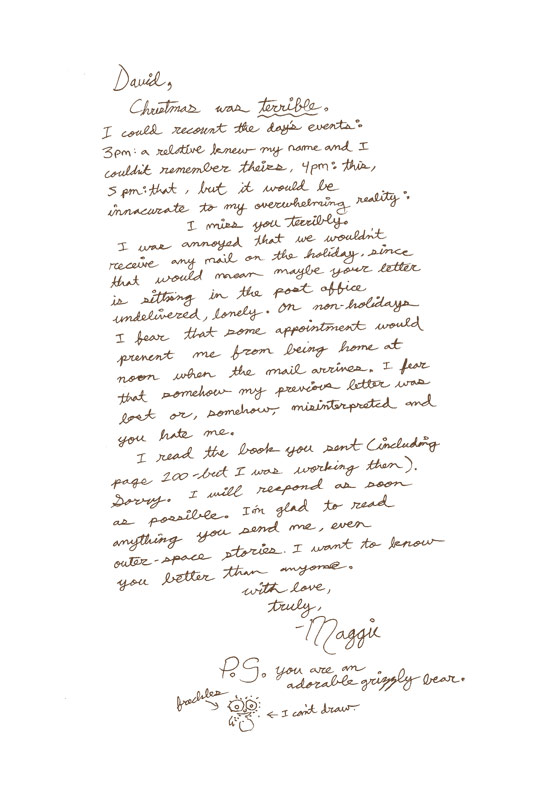 David,
Christmas was terrible.
I could recount the day's events:
3pm: a relative knew my name and I
couldn't remember theirs, 4pm: this,
5pm: that, but it would be
innacurate to my overwhelming reality:
I miss you terribly.
I was annoyed that we wouldn't
receive any mail on the holiday, since
that would mean maybe your letter
is sitting in the post office
undelivered, lonely. On non-holidays
I fear that some appointment would
prevent me from being home at
noon when the mail arrives. I fear
that somehow my previous letter was
lost or, somehow, misinterpreted and
you hate me.
I read the book you sent (including
page 200-but I was working then).
Sorry. I will respond as soon
as possible. I'm glad to read
anything you send me, even
outer-space stories. I want to know
you better than anyone.
with love,
truly,
-Maggie
P.S. you are an
adorable grizzly bear.
freckles
← I can't draw.